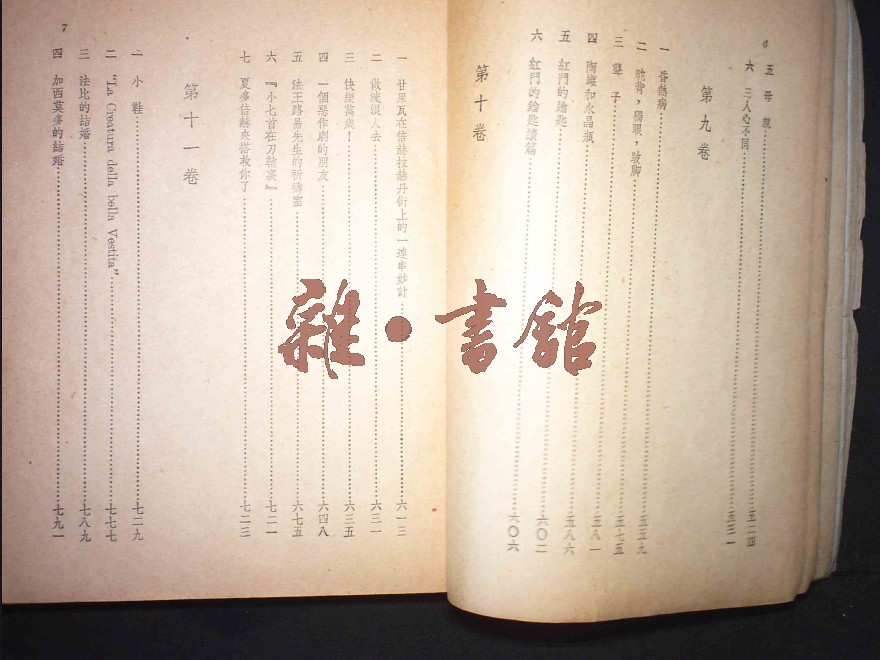 6
五 母 親 五二四
六 三人心不同 五三一
第九卷
一 昏熱病 五五九
二 駝背，獨眼，跛脚
三 聾子 五七五
四 陶罐和水晶瓶 五八一
五 紅門的鑰匙 五八六
六 紅門的鑰匙續篇 六〇二
第十卷 六〇六
一 甘果瓦在倍赫拉赫丹街上的一連串妙計 六一三
二 做流浪人去 六三一
三 快樂萬歲！ 六三五
四 一個惡作劇的朋友 六四八
五 法王路易先生的祈禱室 六七五
六 『小七首在刀鞘裏』 七二一
七 夏多倍解來搭救你了 七二三
第十一卷
一 小鞋 七二九
二 "La Creatura della bella Vestita" 七七七
三 法比的結婚 七八九
四 加西莫多的結婚 七九一
7
雜·書館